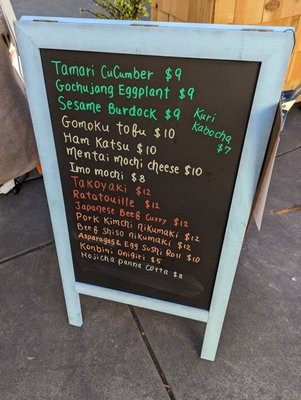 Tamari CuCumber $9
Gochujang Eggplant $9
Sesame Burdock $9
Kuri
Kabocha
$7
Gomoku tofu $10
Ham Katsu $10
mentai mochi cheese $10
Imo mochi $8
Takoyaki $12
Ratatouille $12
Japanese Beef Curry $12
Pork Kimchi Nikumaki $12
Beef Shiso Nikumaki $12
Asparagas & Egg Sushi Roll $10
Konbini Onigiri $5
Hojicha panna cotta $8